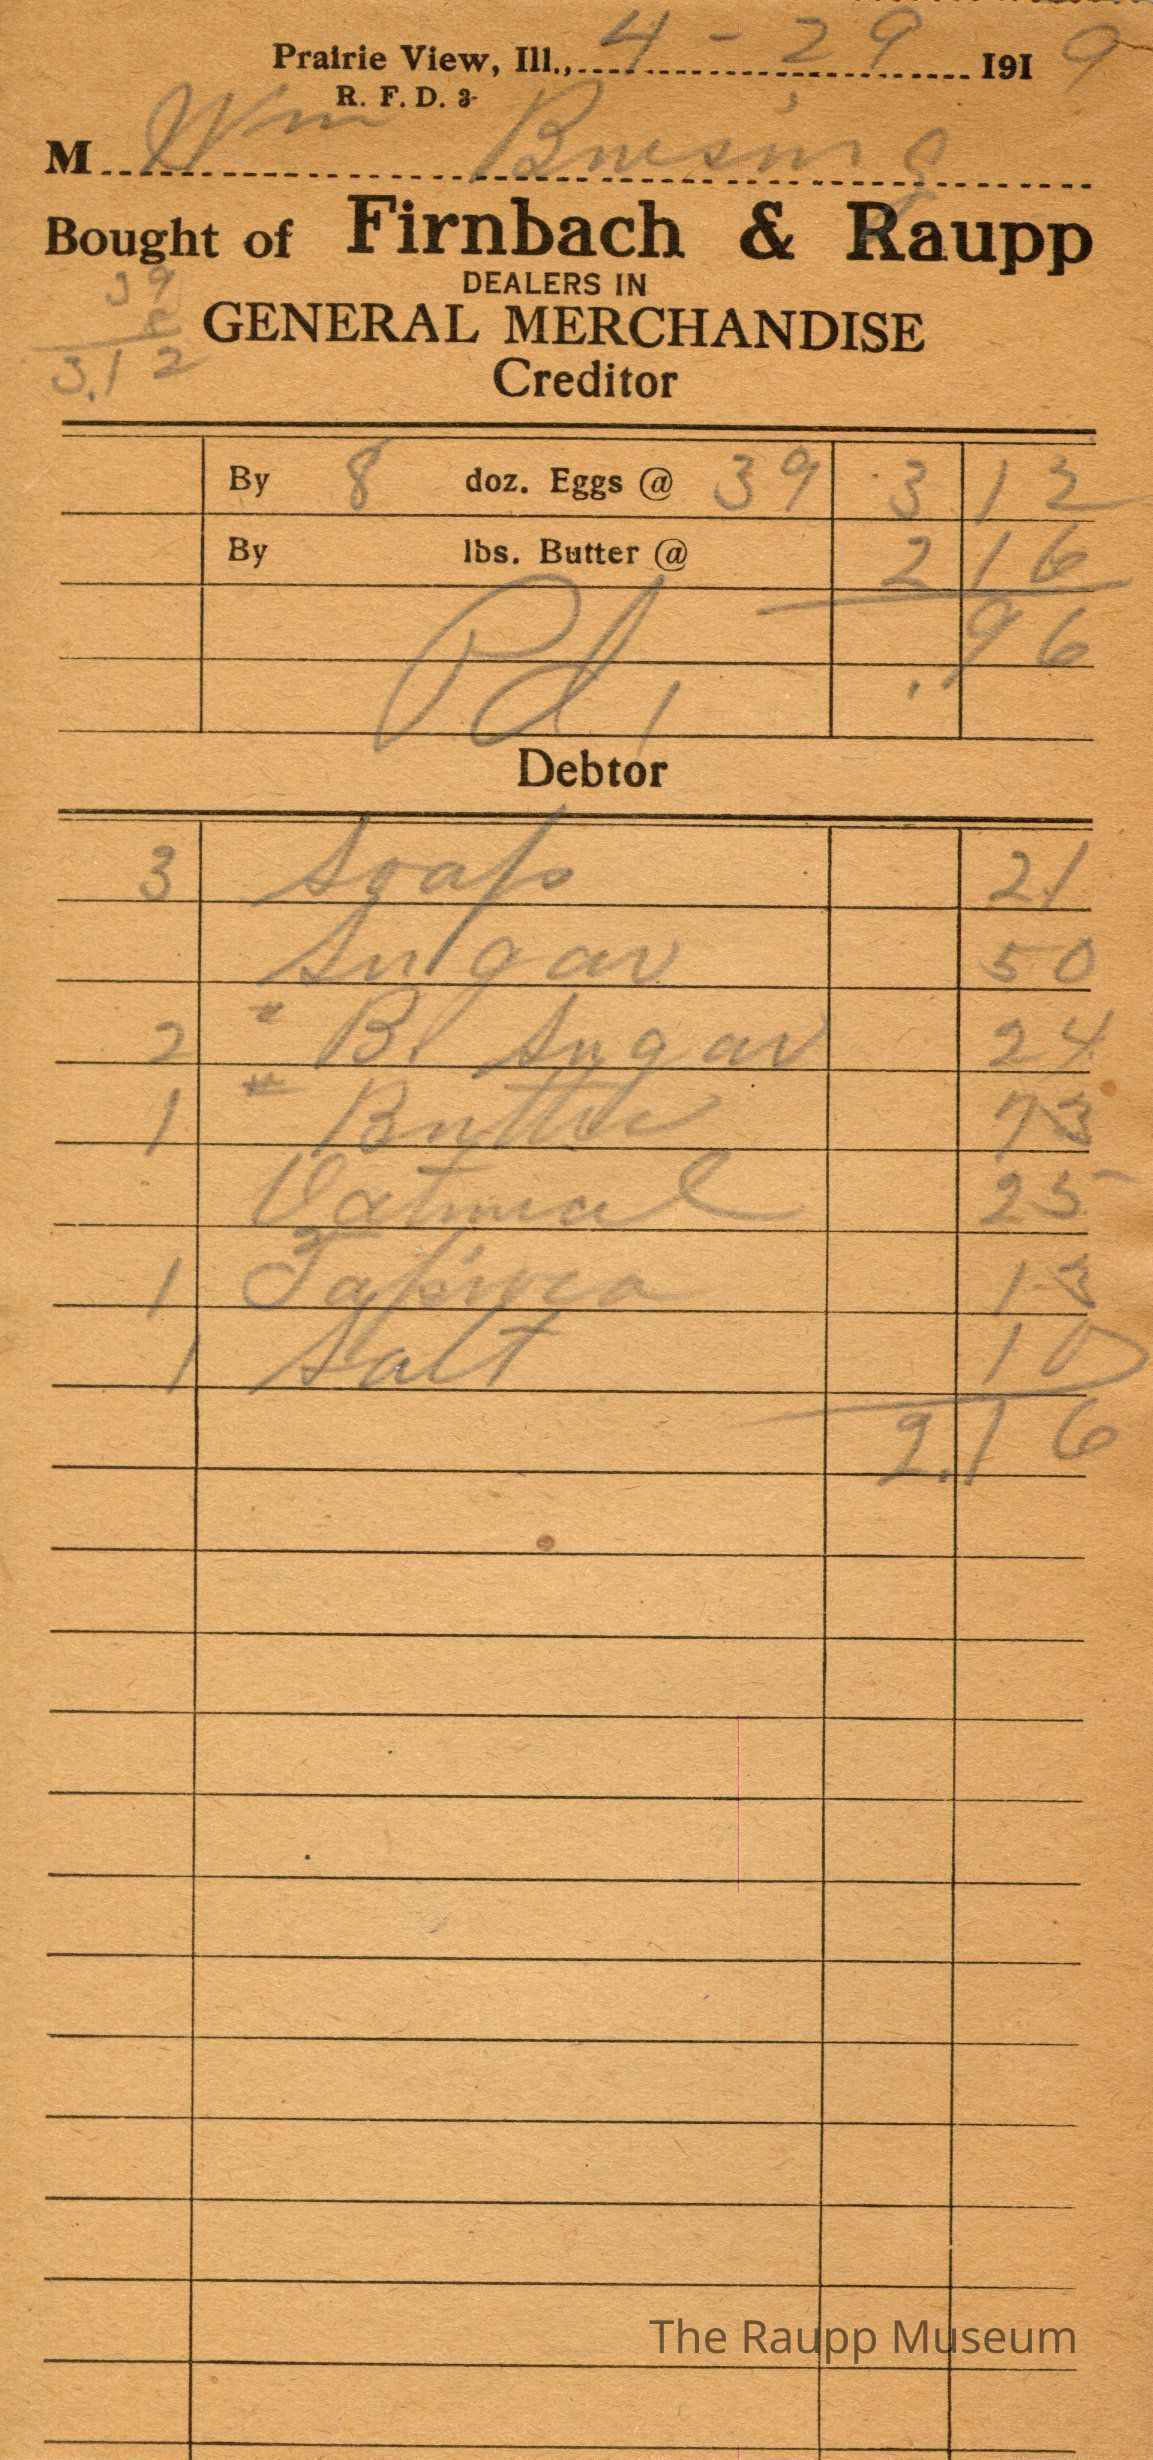 Prairie View, Ill., 4 - 29 1919
R. F. D. 2
M Wm Buesing
Bought of Firnbach & Raupp
DEALERS IN
GENERAL MERCHANDISE
Creditor
39
8
3.12
By 8 doz. Eggs @ 39 3 12
By lbs. Butter @ 2 16
.96
Pd
Debtor
3 Soap 21
Sugar 50
2 # Br Sugar 24
1 # Butter 73
Oatmeal 25
1 Tapioca 13
1 Salt 10
2.16
The Raupp Museum